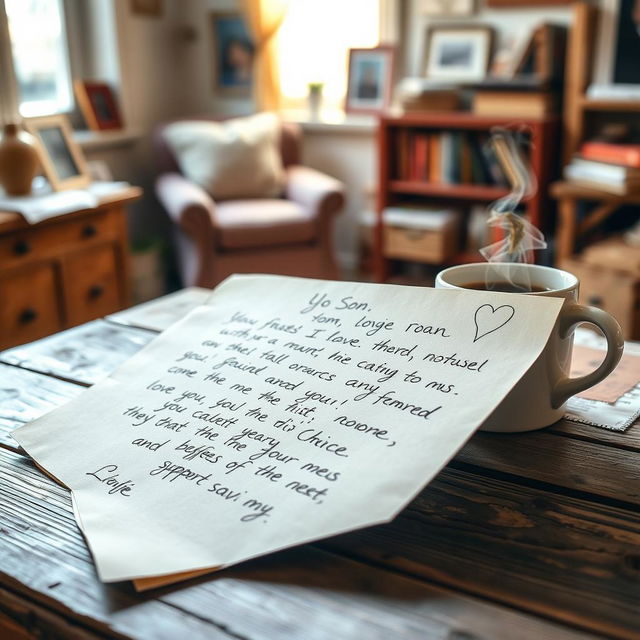 Yo Son,
tom, lovge roan
Your fruts I love. therd, notusel
with,r a murr, hie catiy to mus.
on thel tall orarcs any femred
you! fauial anod you!
come the me the hist, noore,
love you, you the dis Chice
you calett yeary
they that the fre your mes
and beffes of the nest,
gipport savi my.
Liofe